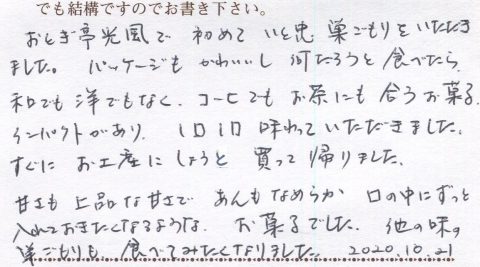 でも結構ですのでお書き下さい。
おとぎ亭光風で 初めて いと忠 巣ごもりをいただき
ました。 パッケージも かわいいし 何だろうと 食べたら
和でも 洋でもなく、コーヒーでも お茶にも 合うお菓子。
インパクトがあり、1口1口 味わっていただきました。
すぐに お土産に しようと 買って 帰りました。
甘さも 上品な甘さで あんもなめらか 口の中にずっと
入れておきたくなるような、お菓子でした。他の味の
巣ごもりも 食べてみたくなりました。 2020.10.21